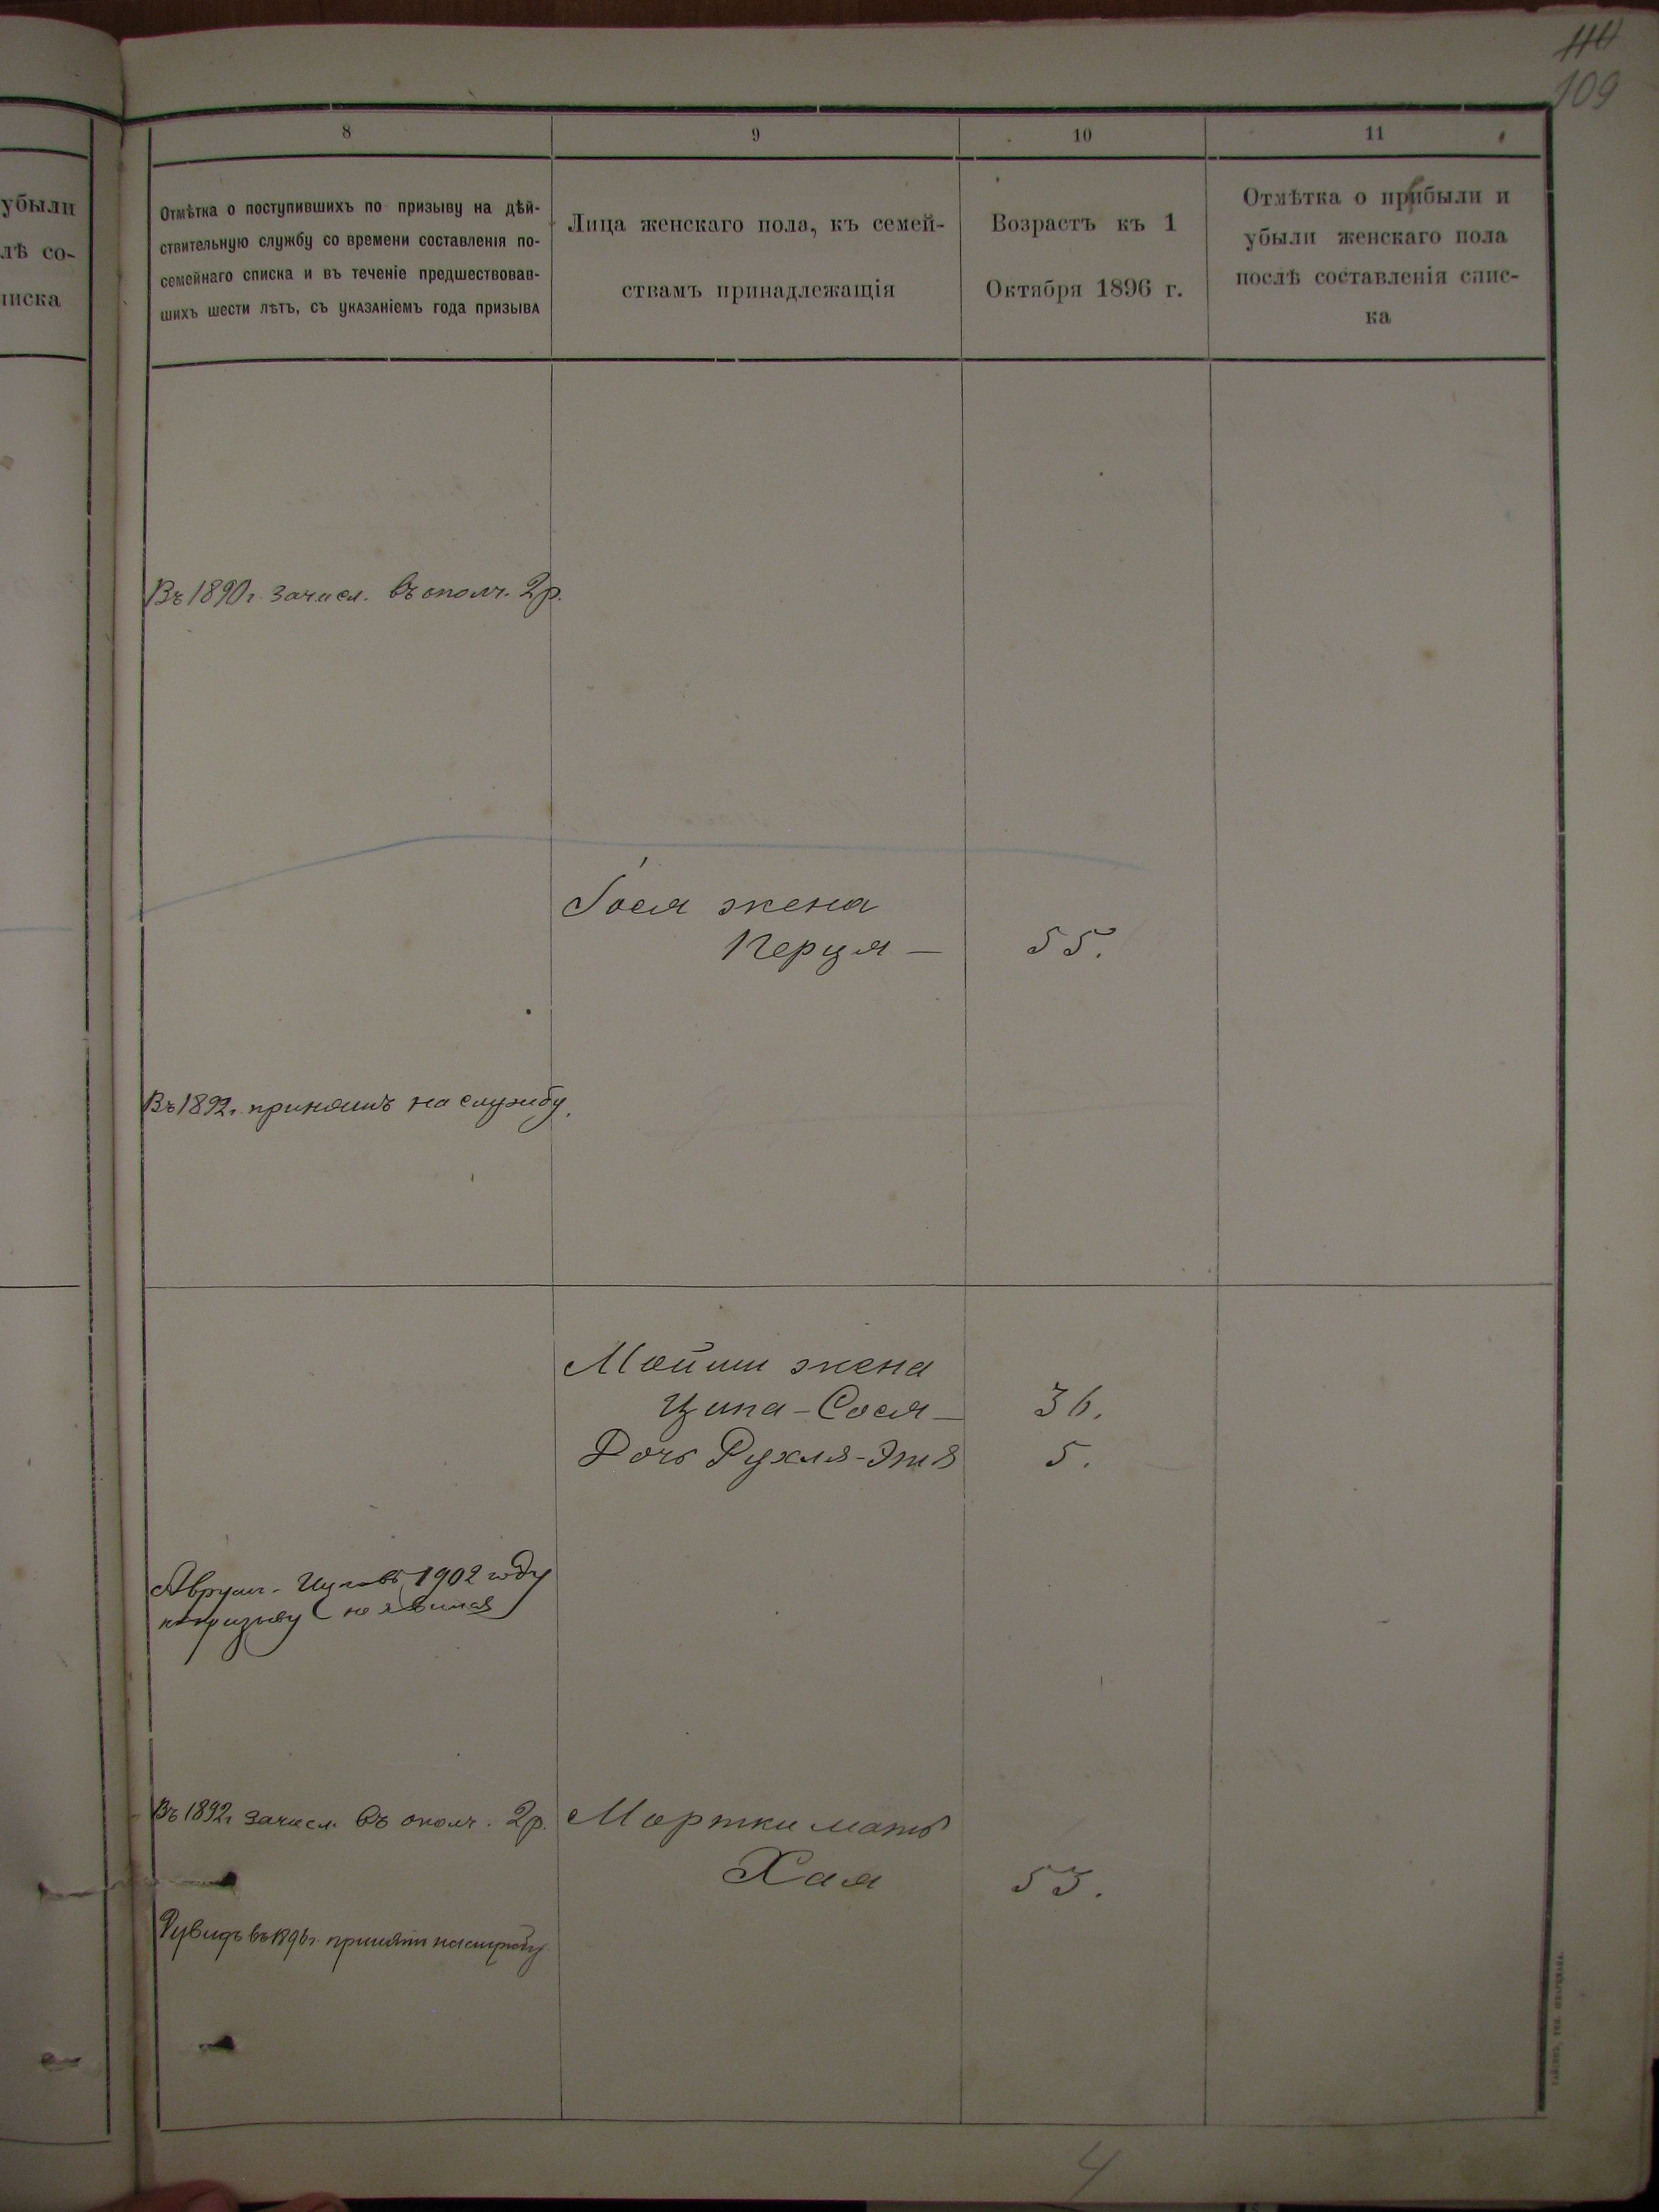 110
109
8
9
10
11
убыли
лѣ со-
писка
Отмѣтка о поступившихъ по призыву на дѣй-
ствительную службу со времени составленія по-
семейнаго списка и въ теченіе предшествовав-
шихъ шести лѣтъ, съ указаніемъ года призыва
Лица женскаго пола, къ семей-
ствамъ принадлежащія
Возрастъ къ 1
Октября 1896 г.
Отмѣтка о прибыли и
убыли женскаго пола
послѣ составленія спис-
ка
Въ 1890 г. зачисл. въ ополч. 2 р.
жена
Перця — 55.
Въ 1892 г. принятъ на службу.
Мойши жена
Ципа-Сося — 36.
Дочь Рухля-Этя 5.
1902 году
по призыву (не явился)
Въ 1892 г. зачисл. въ ополч. 2 р.
Мортки мать
Хая 53.
Рувидъ въ 1896 г. принятъ на службу
4